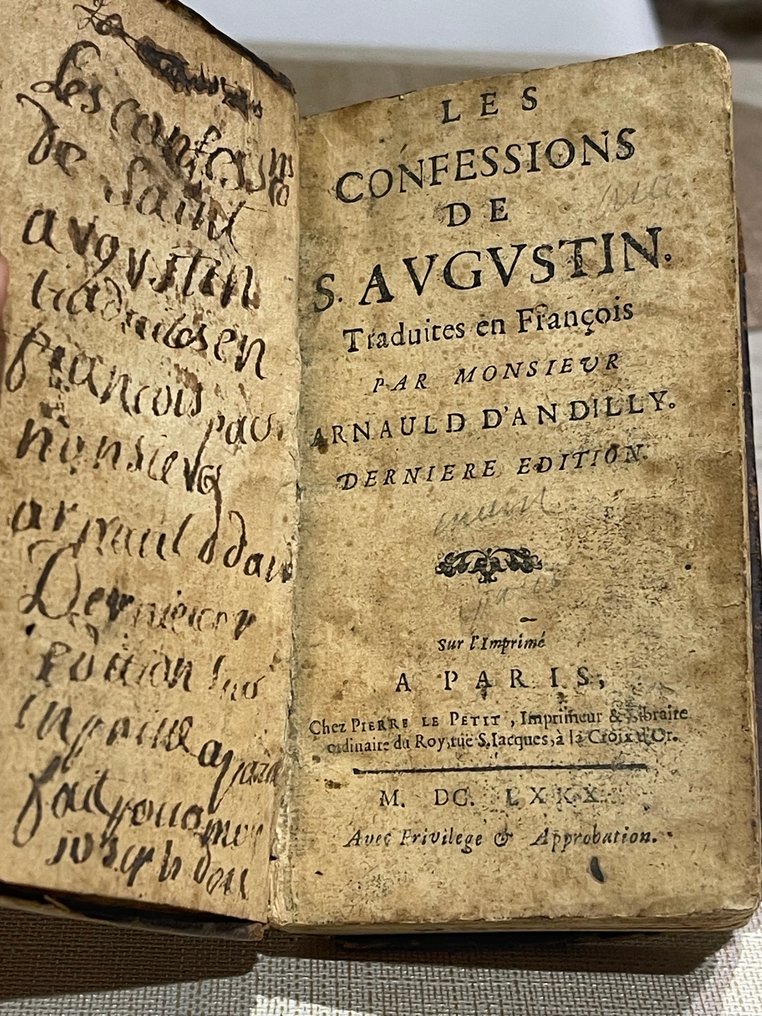 Les confessns
de Saint
avgvstin
traduites en
francois par
monsievr
arnauld dan
Derniere
edition
fait pour moy
LES
CONFESSIONS
DE
S. AVGVSTIN.
Traduites en François
PAR MONSIEVR
ARNAULD D'ANDILLY.
DERNIERE EDITION.
Sur l'Imprimé
A PARIS,
Chez PIERRE LE PETIT, Imprimeur & Libraire
ordinaire du Roy, ruë S. Iacques, à la Croix d'Or.
M. DC. LXXX.
Avec Privilege & Approbation.